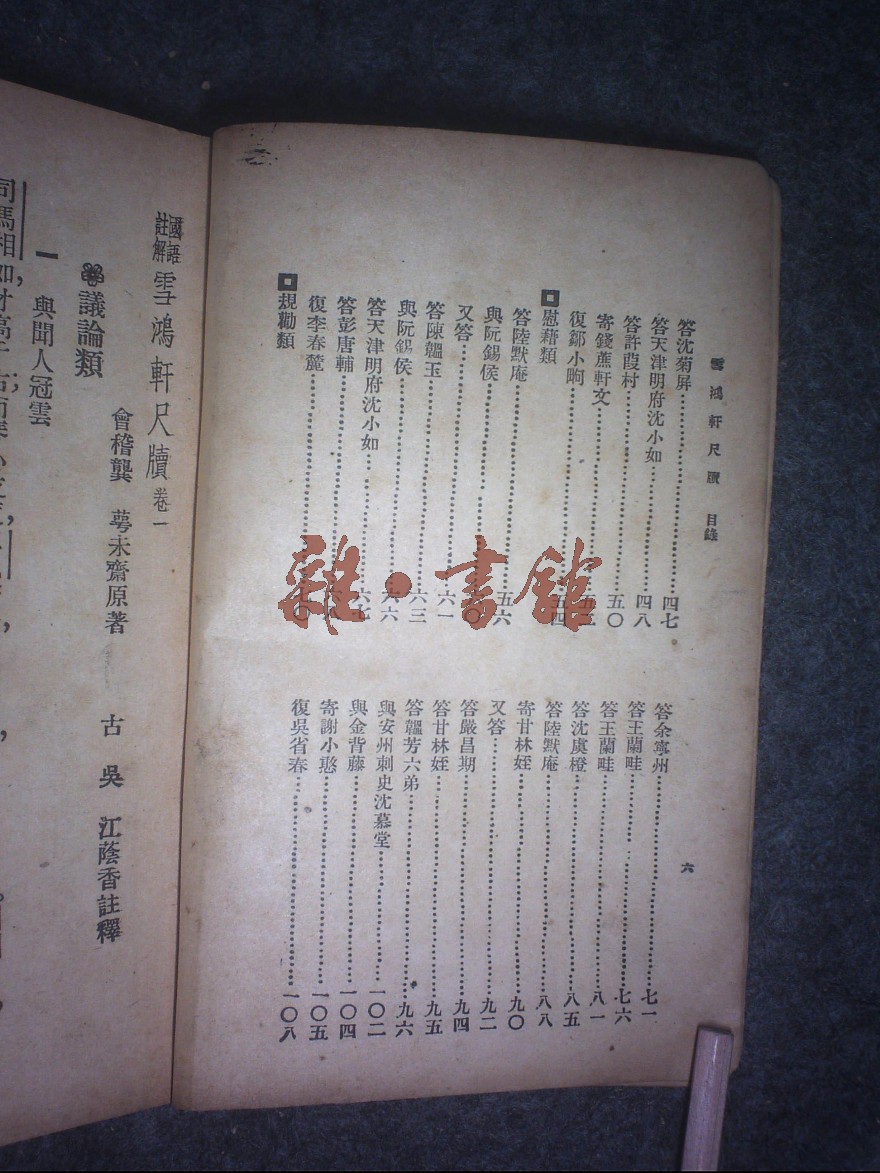 雪鴻軒尺牘 目錄
六
答沈菊屏 四七
答天津明府沈小如 四八
答許葭村 五〇
寄錢蕉軒文
復鄒小眴 五四
慰藉類
答陸默庵 五六
與阮錫侯
又答 六一
答陳韞玉 六三
與阮錫侯 六六
答天津明府沈小如 六七
答彭唐輔
復李春麓 七〇
規勸類
答余寧州 七一
答王蘭畦 七六
答王蘭畦 八一
答沈虞橙 八五
答陸默庵 八八
寄甘林姪 九〇
又答 九二
答嚴昌期 九四
答甘林姪 九五
答韞芳六弟 九六
與安州刺史沈慕堂 一〇二
與金背藤 一〇四
寄謝小憨 一〇五
復吳省春 一〇八
國語註解 雪鴻軒尺牘 卷一
會稽龔 萼未齋原著 古吳 江蔭香註釋
議論類
一 與聞人冠雲
司馬相如才高
雜·書館